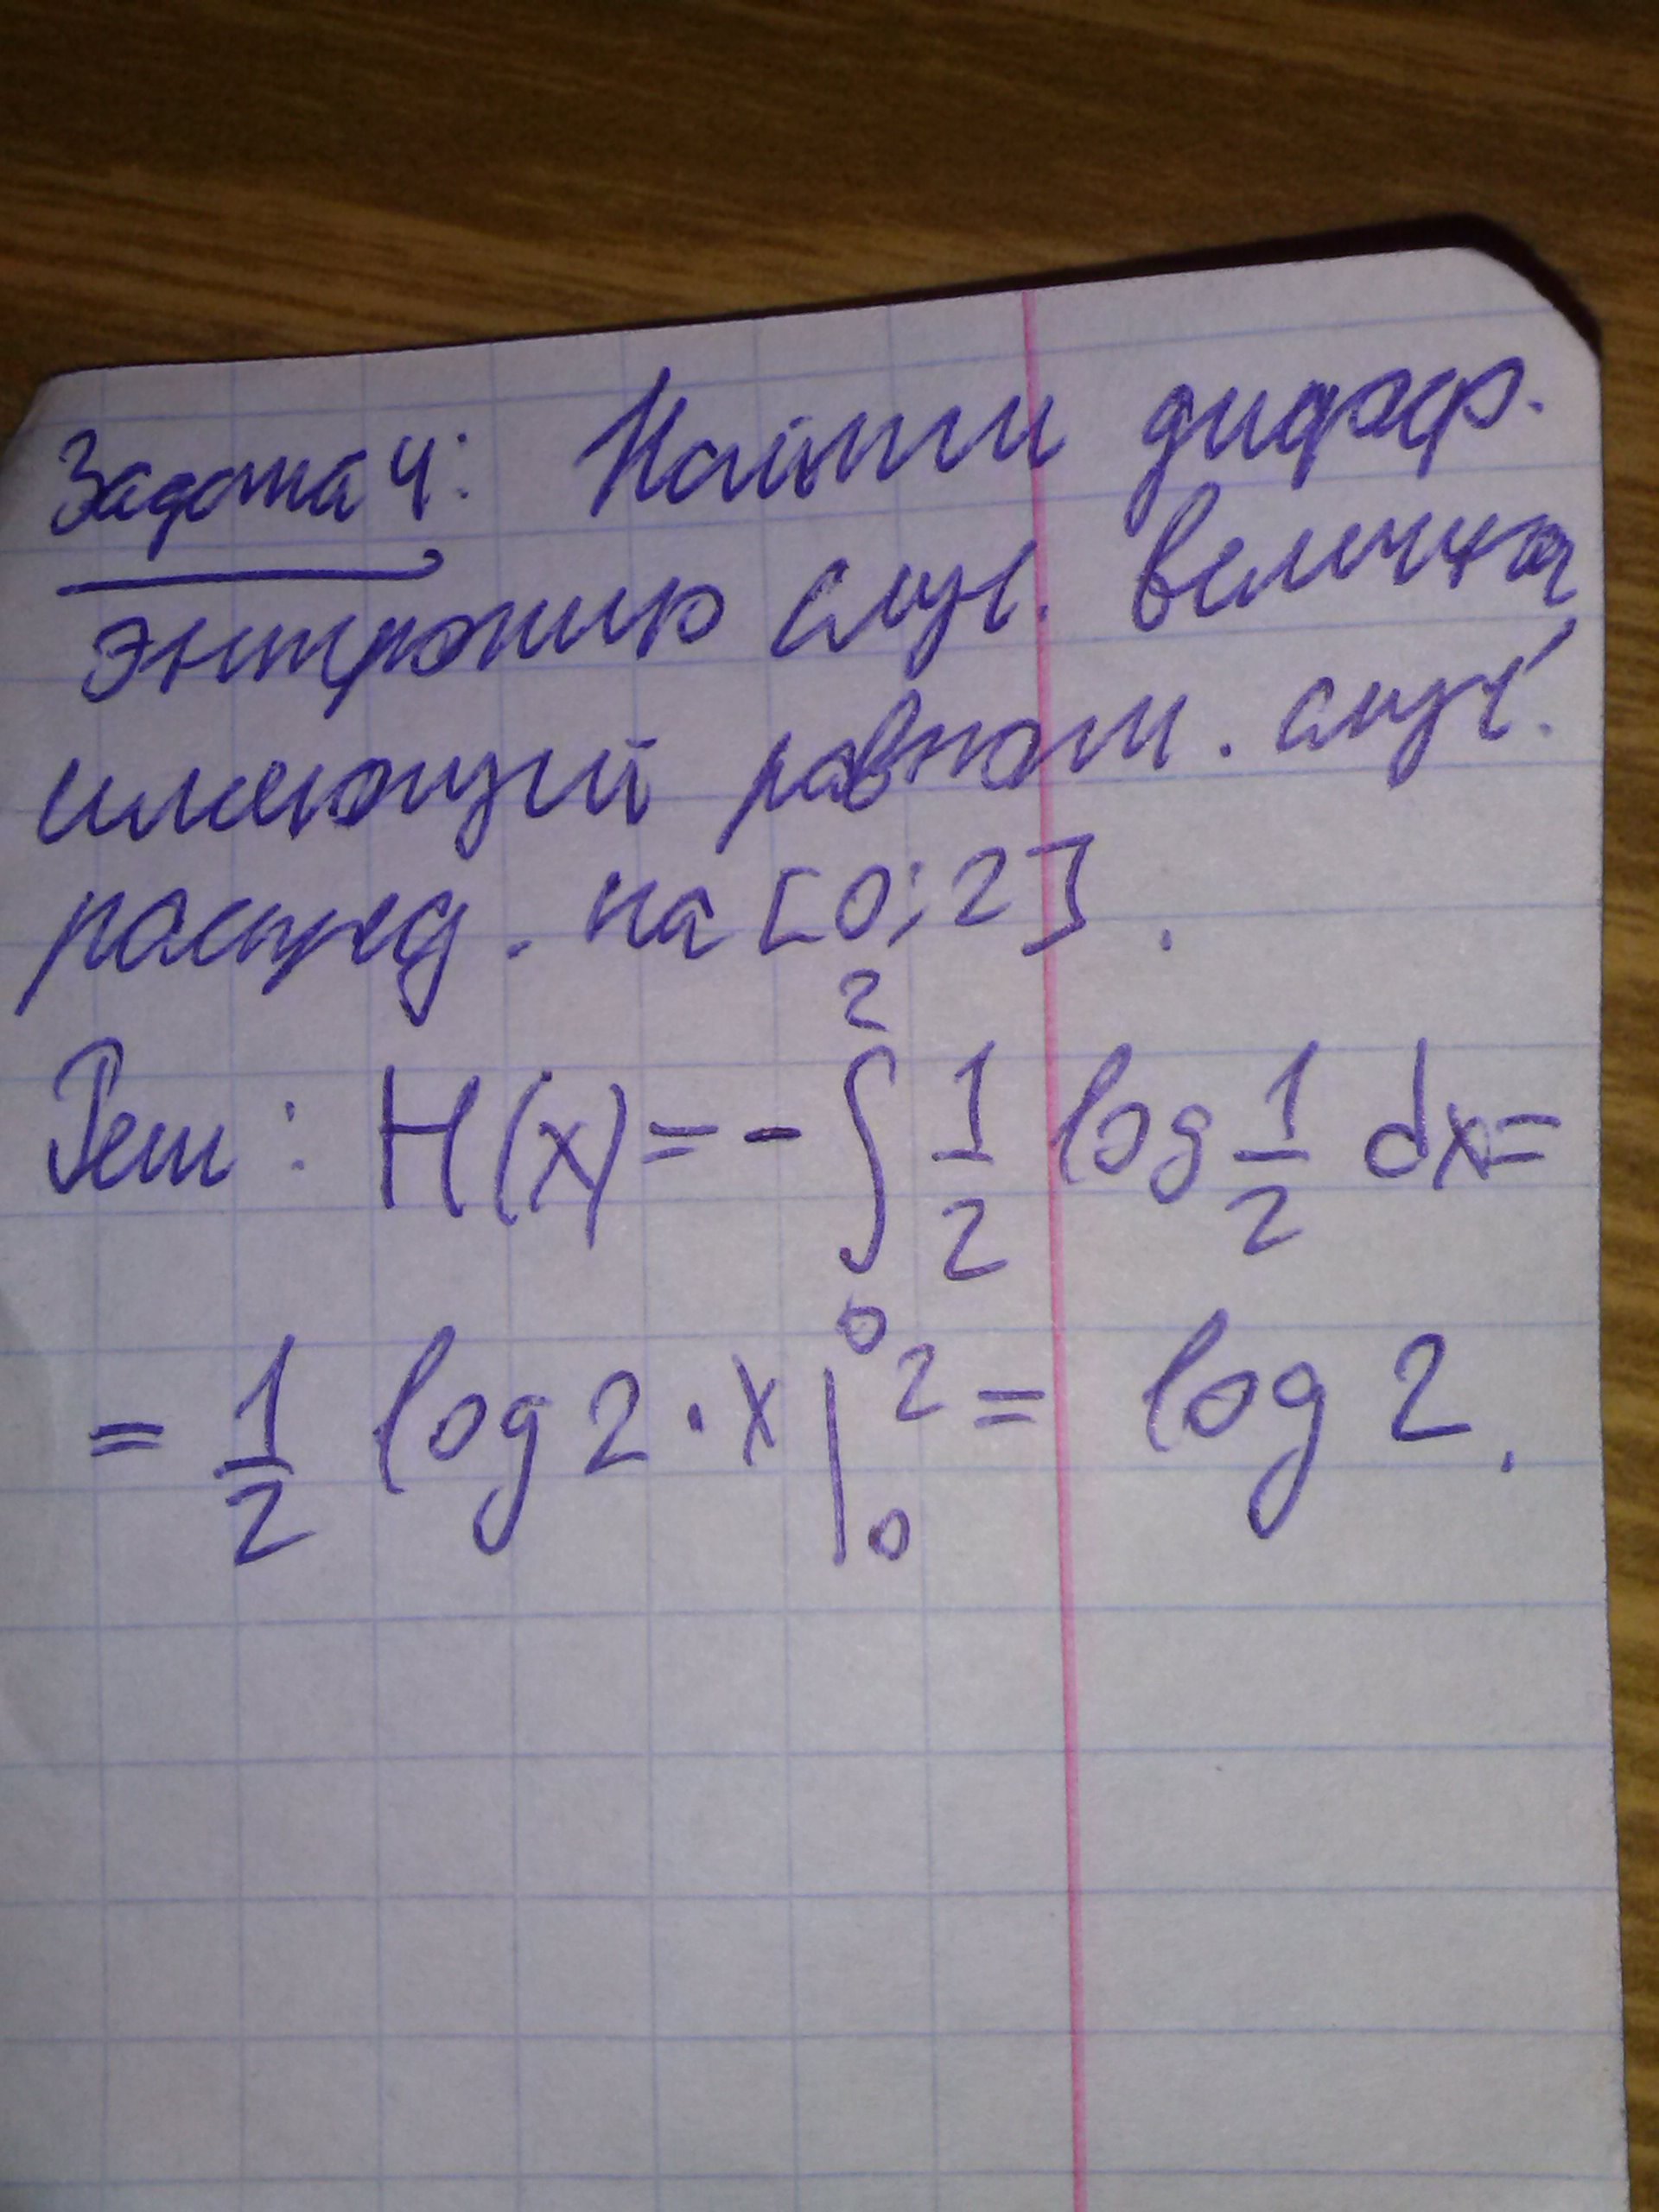 Задача 4: Найти дифф.
энтропию случ. величина
имеющий равном. случ.
распред. на [0; 2].
Реш: H(x) = - ∫₀² 1/2 log 1/2 dx =
= 1/2 log 2 · x |₀² = log 2.